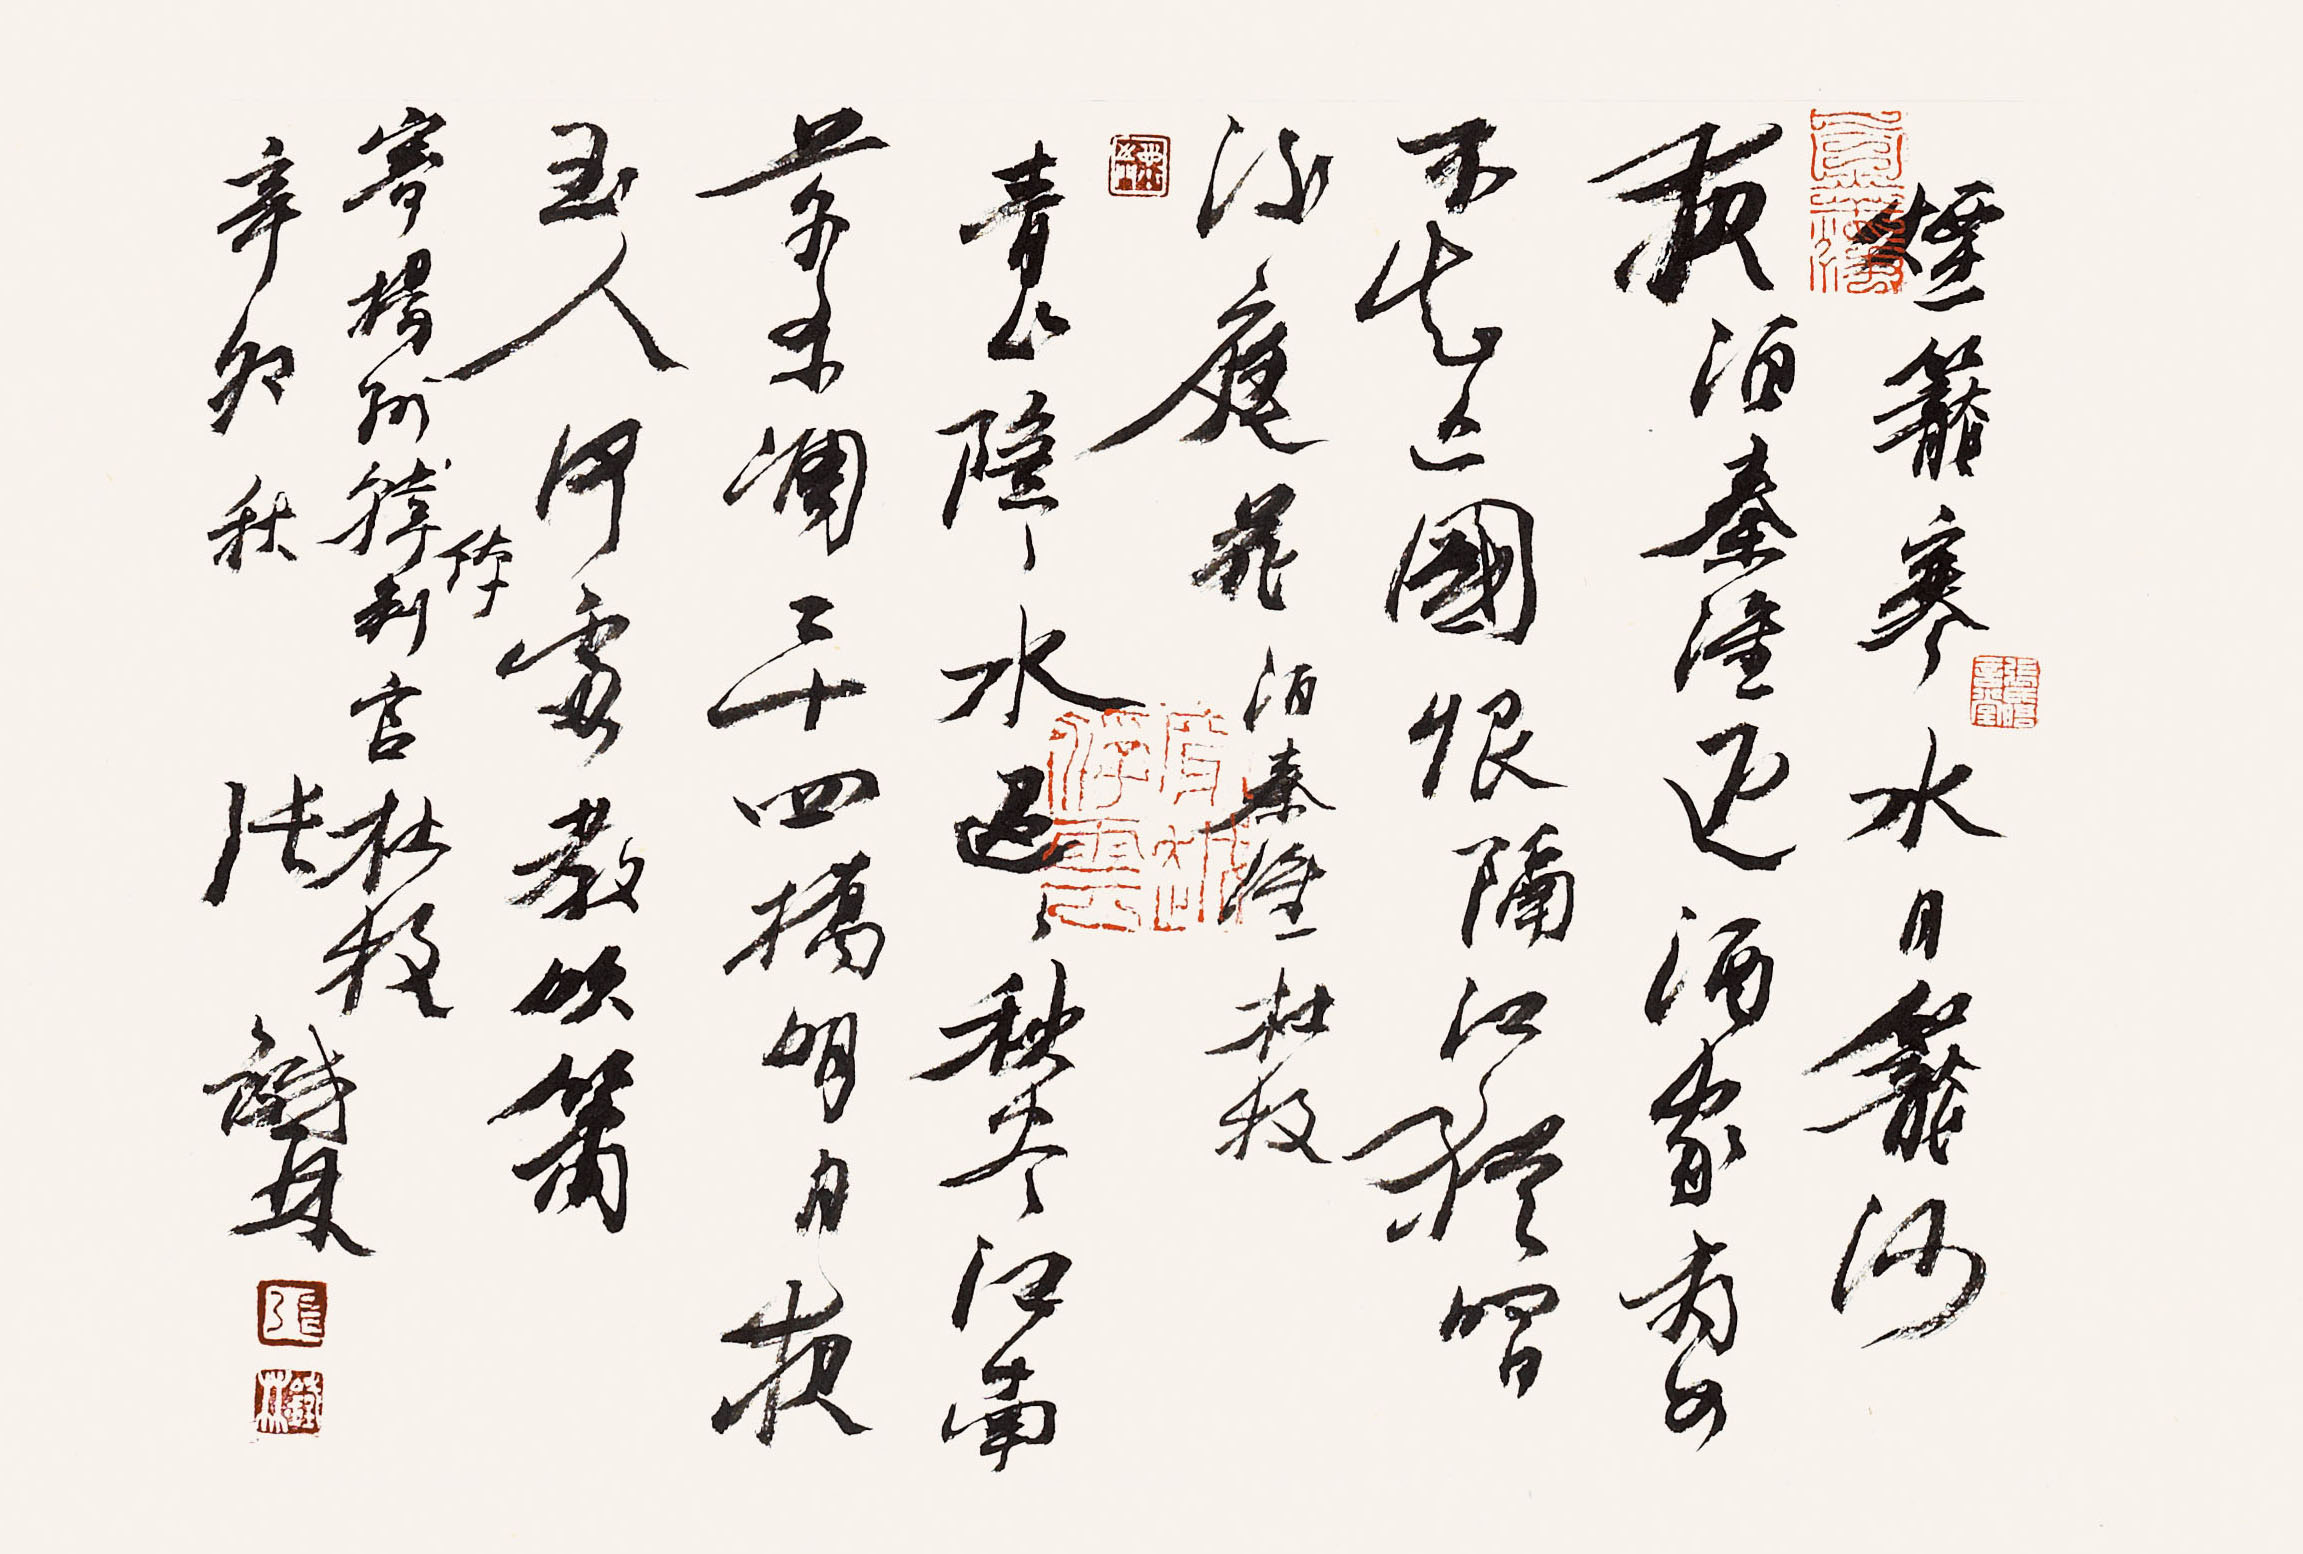 煙籠寒水月籠沙
夜泊秦淮近酒家商女
不知亡國恨隔江猶唱
後庭花 泊秦淮 杜牧
青山隱々水迢々秋尽江南
草未凋二十四橋明月夜
玉人何處教吹簫
寄揚州韓綽判官 杜牧
辛卯秋 張鐵林
張
鐵林